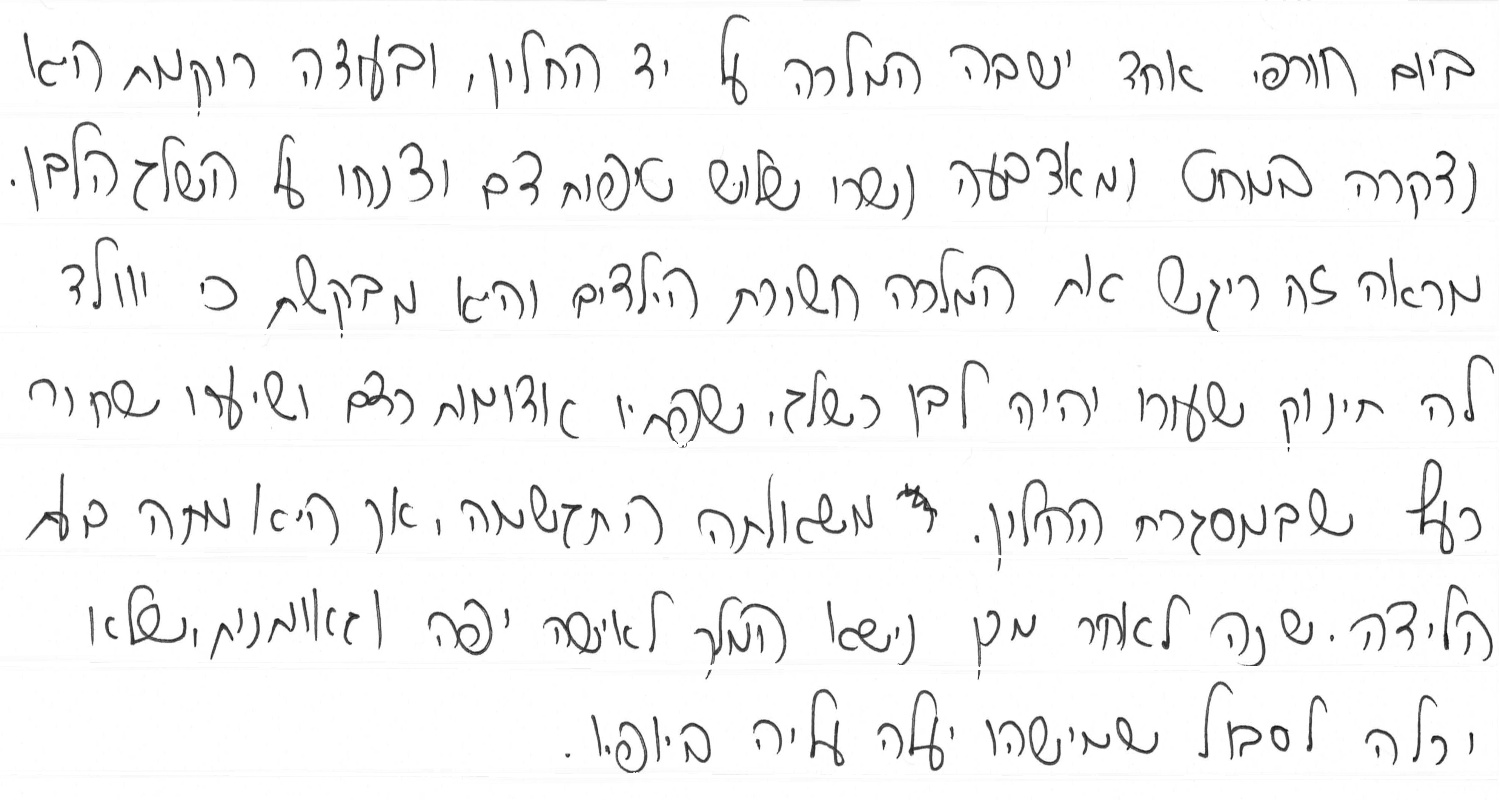 ביום חורפי אחד ישבה המלכה על יד החלון, ובעודה רוקמת היא
נדקרה במחט ומאצבעה נשרו שלוש טיפות דם וצנחו על השלג הלבן.
מראה זה ריגש את המלכה חשוכת הילדים והיא מבקשת כי יוולד
לה תינוק שעורו יהיה לבן כשלג, שפתיו אדומות כדם ושיערו שחור
כעץ שבמסגרת החלון. משאלתה התגשמה, אך היא מתה בעת
הלידה. שנה לאחר מכן נישא המלך לאישה יפה וגאוותנית, שלא
יכלה לסבול שמישהו יעלה עליה ביופיו.